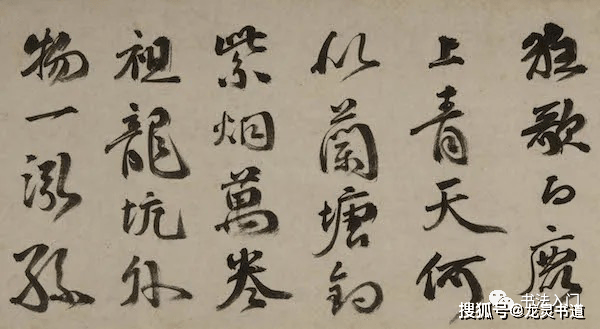 狂歌白鹿
上青天何
似蘭塘釣
紫烟萬卷
祖龍坑外
物一泓孫
书法入门
搜狐号@龙灵书道